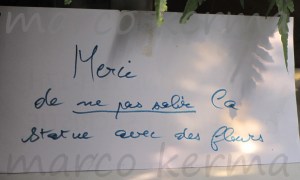 marco kerma
Merci
de ne pas salir la
statue avec des fleurs
marco kerma